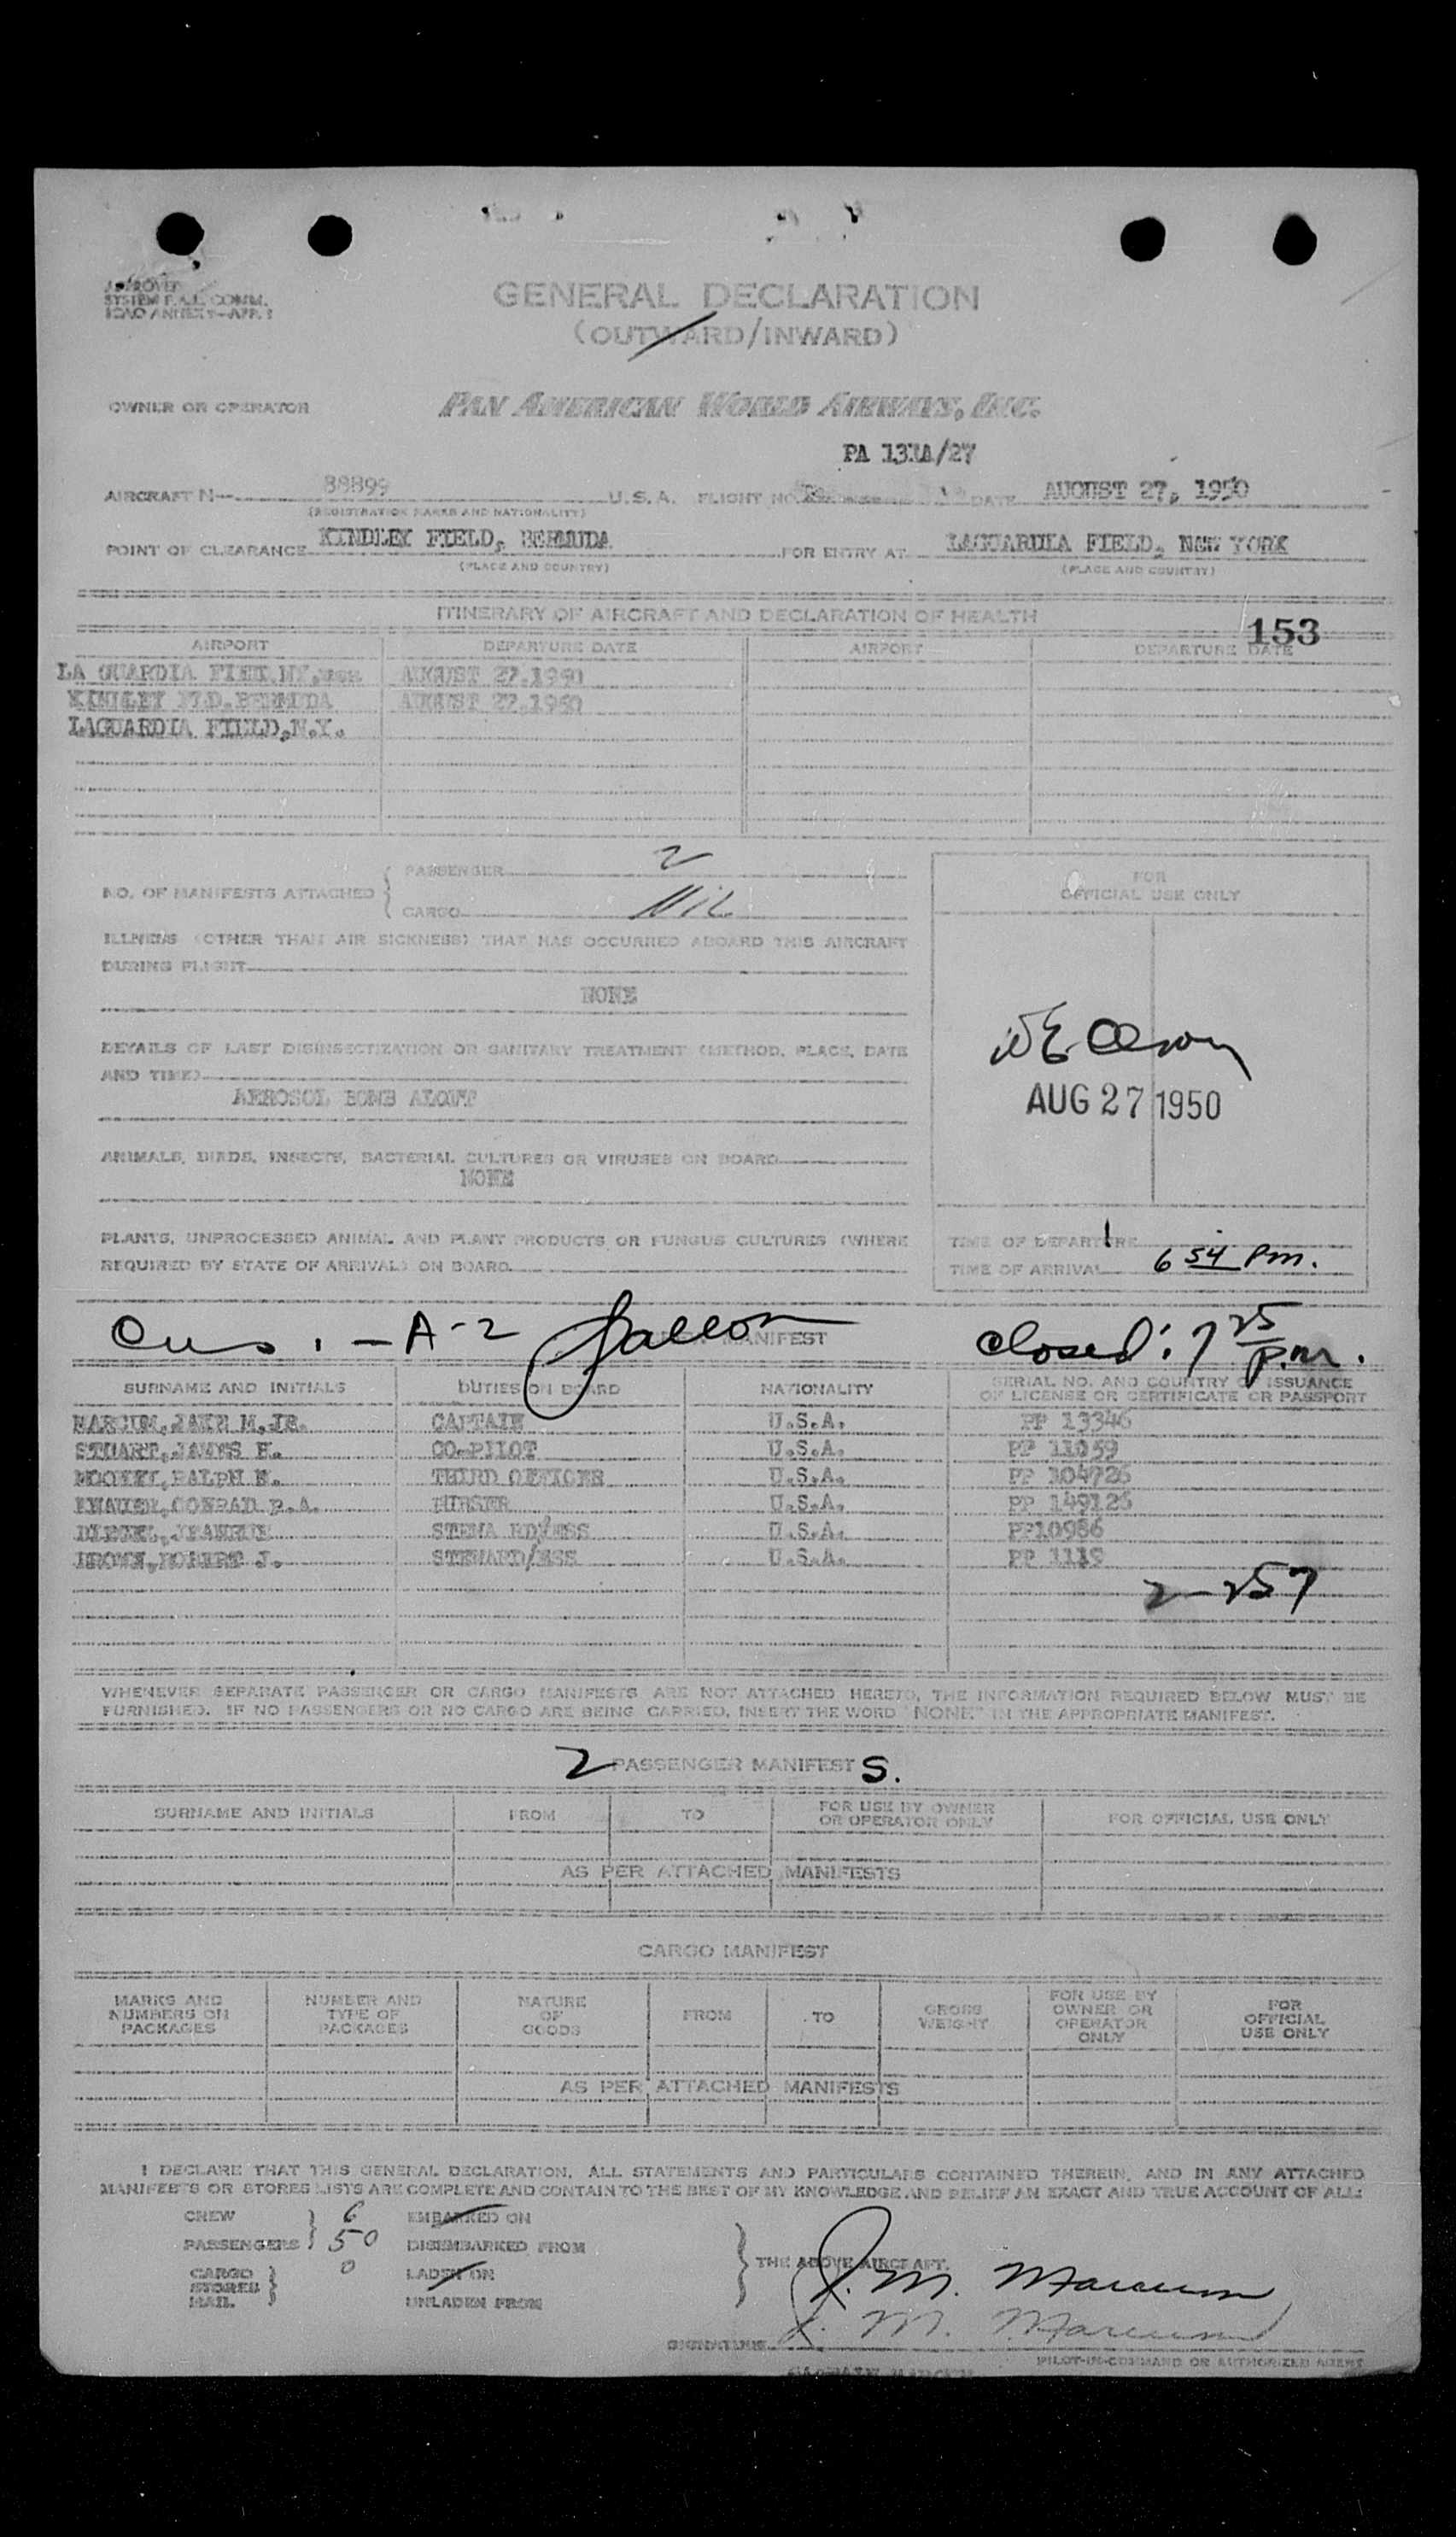 APPROVED
SYSTEM F.A.L. COMM.
ICAO ANNEX 9-APP. 1
GENERAL DECLARATION
(OUTWARD/INWARD)
OWNER OR OPERATOR PAN AMERICAN WORLD AIRWAYS, INC.
PA 131A/27
AIRCRAFT N- 88899 U.S.A. FLIGHT NO. DATE AUGUST 27, 1950
(REGISTRATION MARKS AND NATIONALITY)
POINT OF CLEARANCE KINDLEY FIELD, BERMUDA FOR ENTRY AT LAGUARDIA FIELD, NEW YORK
(PLACE AND COUNTRY) (PLACE AND COUNTRY)
ITINERARY OF AIRCRAFT AND DECLARATION OF HEALTH
153
AIRPORT DEPARTURE DATE AIRPORT DEPARTURE DATE
LA GUARDIA FIELD.NY. AUGUST 27.1950
KINDLEY FLD.BERMUDA AUGUST 27.1950
LAGUARDIA FIELD,N.Y.
NO. OF MANIFESTS ATTACHED
PASSENGER 2
CARGO Nil
ILLNESS (OTHER THAN AIR SICKNESS) THAT HAS OCCURRED ABOARD THIS AIRCRAFT
DURING FLIGHT
NONE
DETAILS OF LAST DISINSECTIZATION OR SANITARY TREATMENT (METHOD, PLACE, DATE
AND TIME)
AEROSOL BOMB ALOFT
ANIMALS, BIRDS, INSECTS, BACTERIAL CULTURES OR VIRUSES ON BOARD
NONE
PLANTS, UNPROCESSED ANIMAL AND PLANT PRODUCTS OR FUNGUS CULTURES (WHERE
REQUIRED BY STATE OF ARRIVAL) ON BOARD
FOR
OFFICIAL USE ONLY
AUG 27 1950
TIME OF DEPARTURE
TIME OF ARRIVAL 6 54 Pm.
Cus. - A-2 MANIFEST Closed: 7 25 p.m.
SURNAME AND INITIALS DUTIES ON BOARD NATIONALITY SERIAL NO. AND COUNTRY OF ISSUANCE
OF LICENSE OR CERTIFICATE OR PASSPORT
MARCUM, JAKE M.JR. CAPTAIN U.S.A. PP 13346
STUART, JAMES H. CO-PILOT U.S.A. PP 11059
RALPH THIRD OFFICER U.S.A. PP 104726
CONRAD P.A. PURSER U.S.A. PP 149126
U.S.A. PP10986
BROWN, ROBERT J. STEWARD/ESS U.S.A. PP 1119
2-257
WHENEVER SEPARATE PASSENGER OR CARGO MANIFESTS ARE NOT ATTACHED HERETO, THE INFORMATION REQUIRED BELOW MUST BE
FURNISHED. IF NO PASSENGERS OR NO CARGO ARE BEING CARRIED, INSERT THE WORD "NONE" IN THE APPROPRIATE MANIFEST.
2 PASSENGER MANIFEST S.
SURNAME AND INITIALS FROM TO FOR USE BY OWNER
OR OPERATOR ONLY FOR OFFICIAL USE ONLY
AS PER ATTACHED MANIFESTS
CARGO MANIFEST
MARKS AND
NUMBERS ON
PACKAGES
NUMBER AND
TYPE OF
PACKAGES
NATURE
OF
GOODS
FROM
TO
GROSS
WEIGHT
FOR USE BY
OWNER OR
OPERATOR
ONLY
FOR
OFFICIAL
USE ONLY
AS PER ATTACHED MANIFESTS
I DECLARE THAT THIS GENERAL DECLARATION, ALL STATEMENTS AND PARTICULARS CONTAINED THEREIN, AND IN ANY ATTACHED
MANIFESTS OR STORES LISTS ARE COMPLETE AND CONTAIN TO THE BEST OF MY KNOWLEDGE AND BELIEF AN EXACT AND TRUE ACCOUNT OF ALL:
CREW 6 EMBARKED ON
PASSENGERS 50 DISEMBARKED FROM
CARGO 0 LADEN ON
STORES
MAIL UNLADEN FROM
THE ABOVE AIRCRAFT.
J. M. Marcum
J. M. Marcum
SIGNATURE
PILOT-IN-COMMAND OR AUTHORIZED AGENT